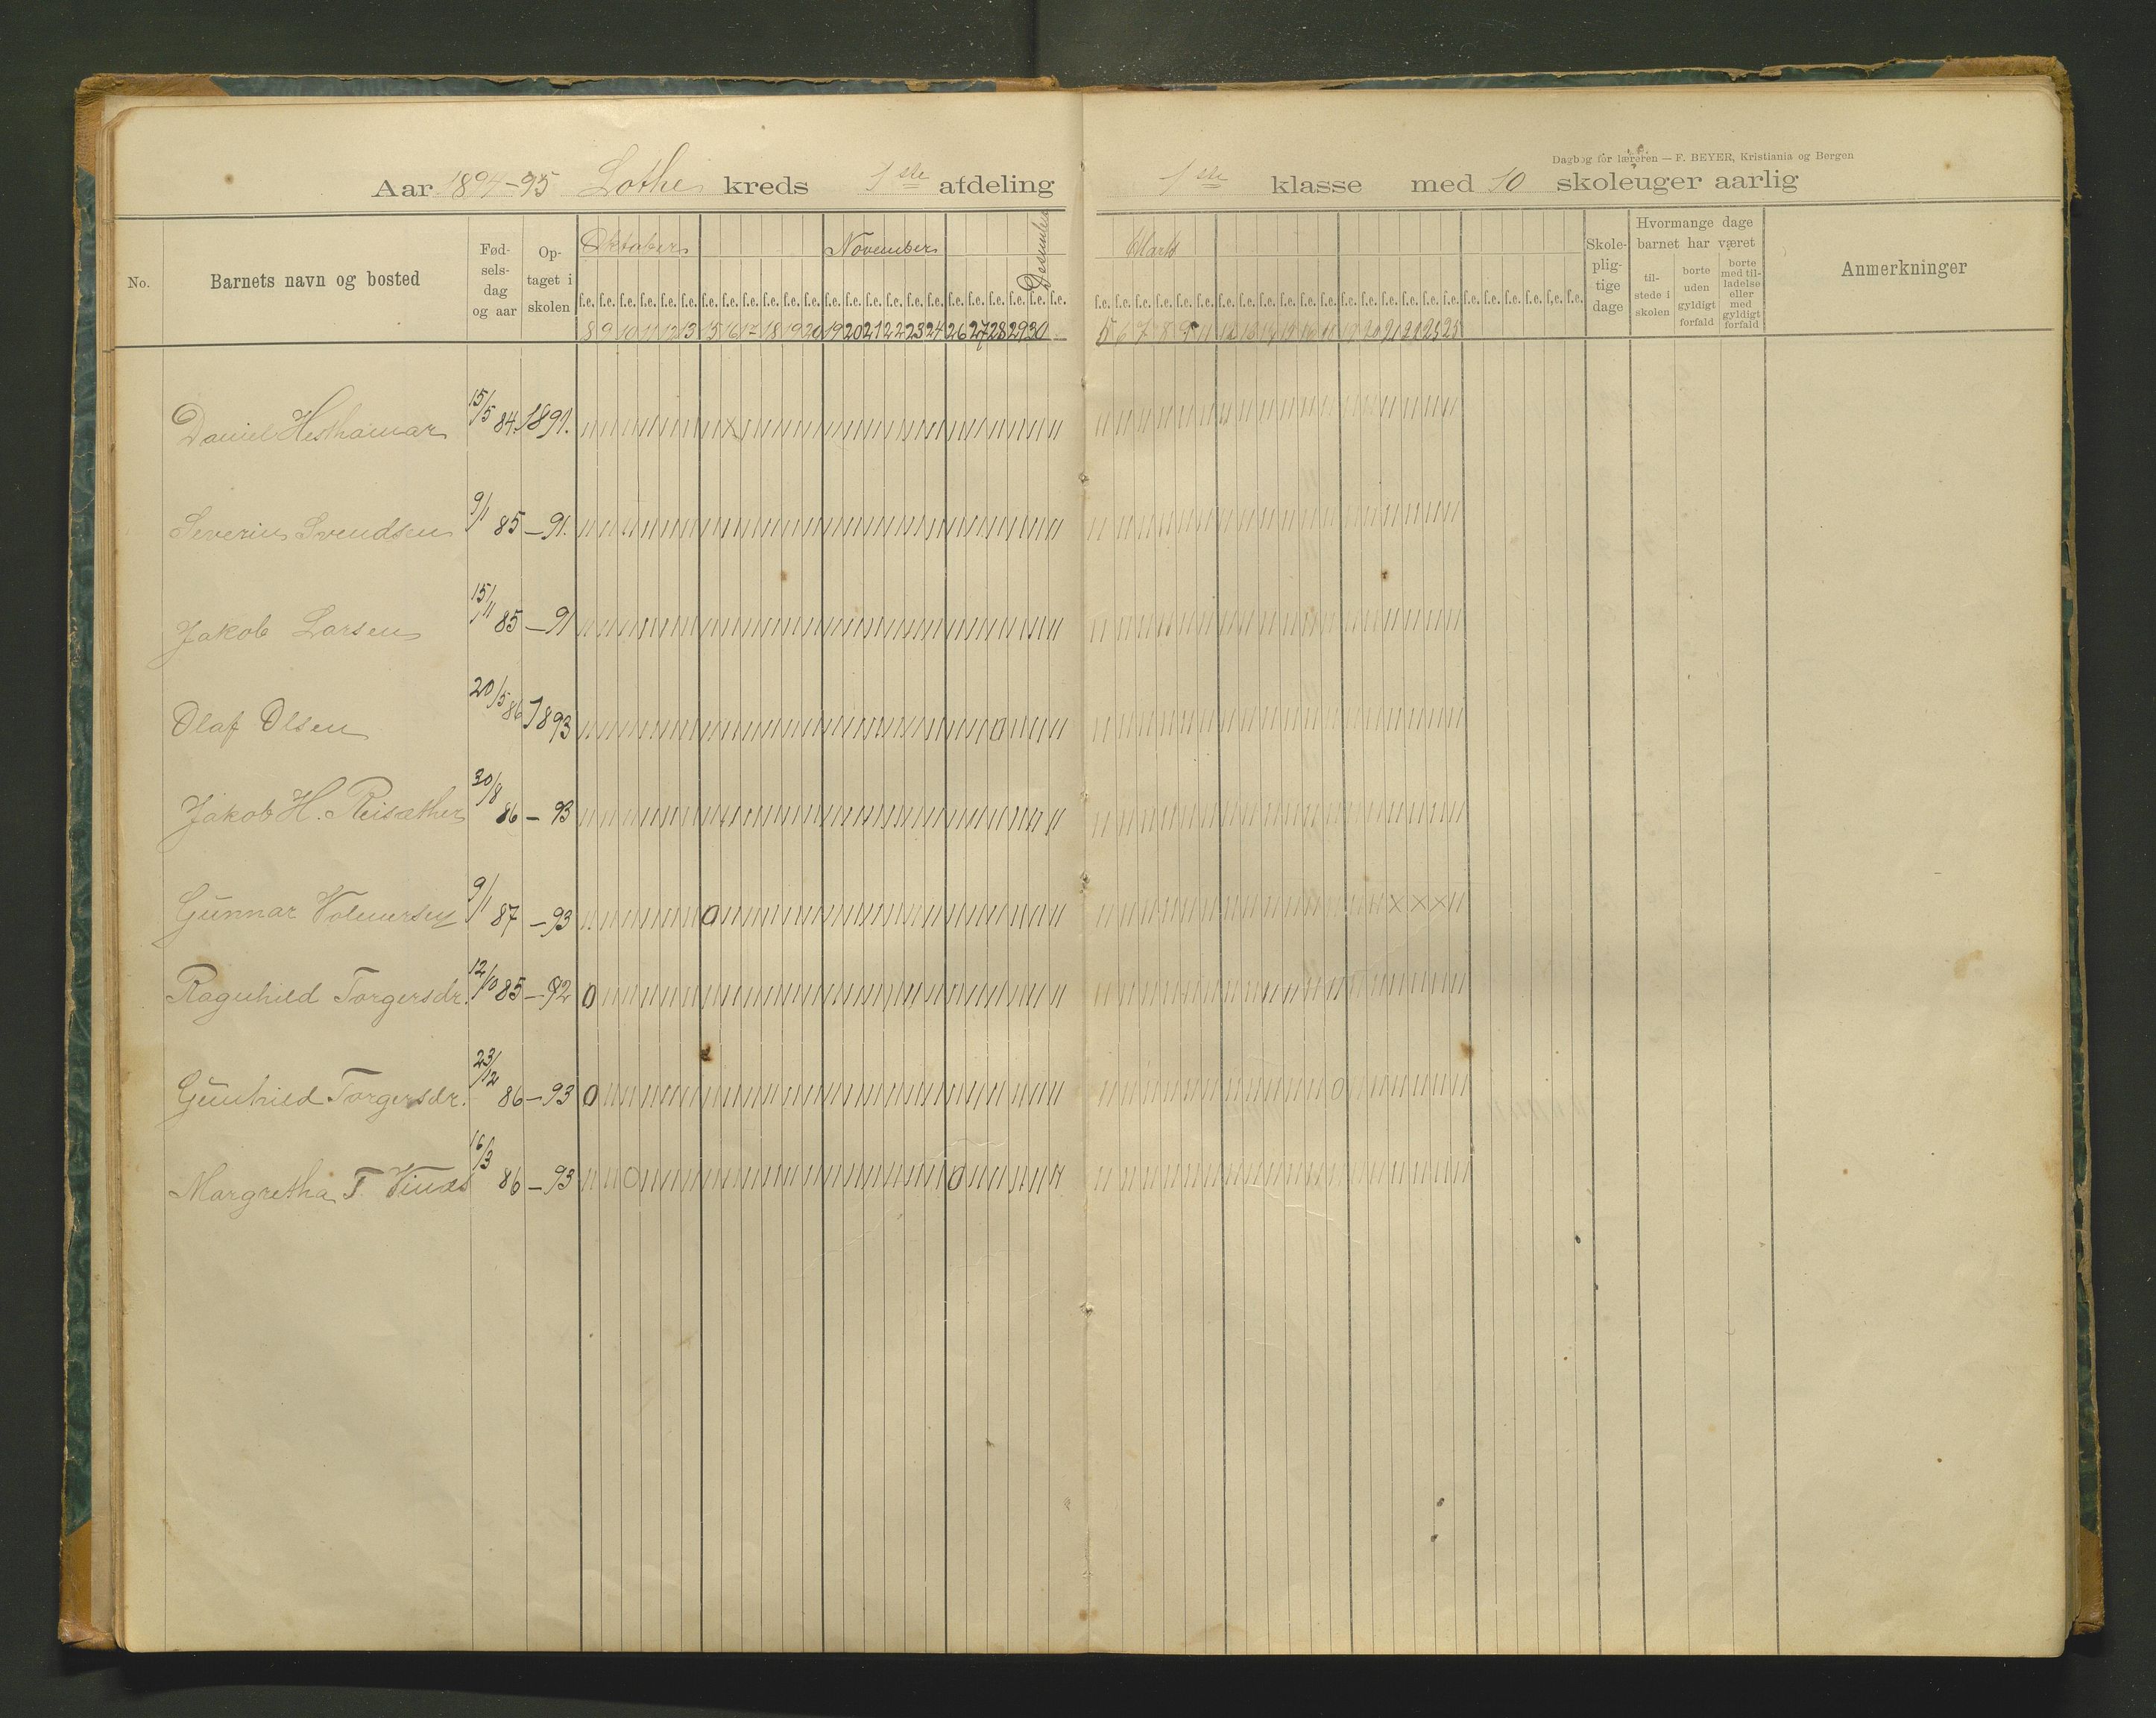 Dagbog for læreren — F. BEYER, Kristiania og Bergen
Aar 1894-95 Lothe kreds 1ste afdeling 1ste klasse med 10 skoleuger aarlig
No.
Barnets navn og bosted
Fød-
sels-
dag
og aar
Op-
taget i
skolen
Oktober November Desember
f.e. f.e. f.e. f.e. f.e. f.e. f.e. f.e. f.e. f.e. f.e. f.e. f.e. f.e. f.e. f.e. f.e. f.e. f.e. f.e. f.e. f.e. f.e. f.e.
8 9 10 11 12 13 15 16 17 18 19 20 19 20 21 22 23 24 26 27 28 29 30
Marts
f.e. f.e. f.e. f.e. f.e. f.e. f.e. f.e. f.e. f.e. f.e. f.e. f.e. f.e. f.e. f.e. f.e. f.e. f.e. f.e. f.e. f.e. f.e. f.e.
5 6 7 8 9 11 12 13 14 15 16 18 19 20 21 22 23 25
Skole-
plig-
tige
dage
Hvormange dage
barnet har været
til-
stede i
skolen
borte
uden
gyldigt
forfald
borte
med til-
ladelse
eller
med
gyldigt
forfald
Anmerkninger
Daniel Hesthamar 15/5 84. 1891.
Severin Svendsen 9/1 85 — 91.
Jakob Larsen 15/11 85 — 91
Olaf Olsen 20/5 86 1893
Jakob H. Reisæther 30/8 86 — 93
Gunnar Volmersen 9/1 87 — 93
Ragnhild Torgersdr. 12/10 85 — 92
Gunhild Torgersdr. 23/12 86 — 93
Margretha T. Vinæs 16/3 86 — 93